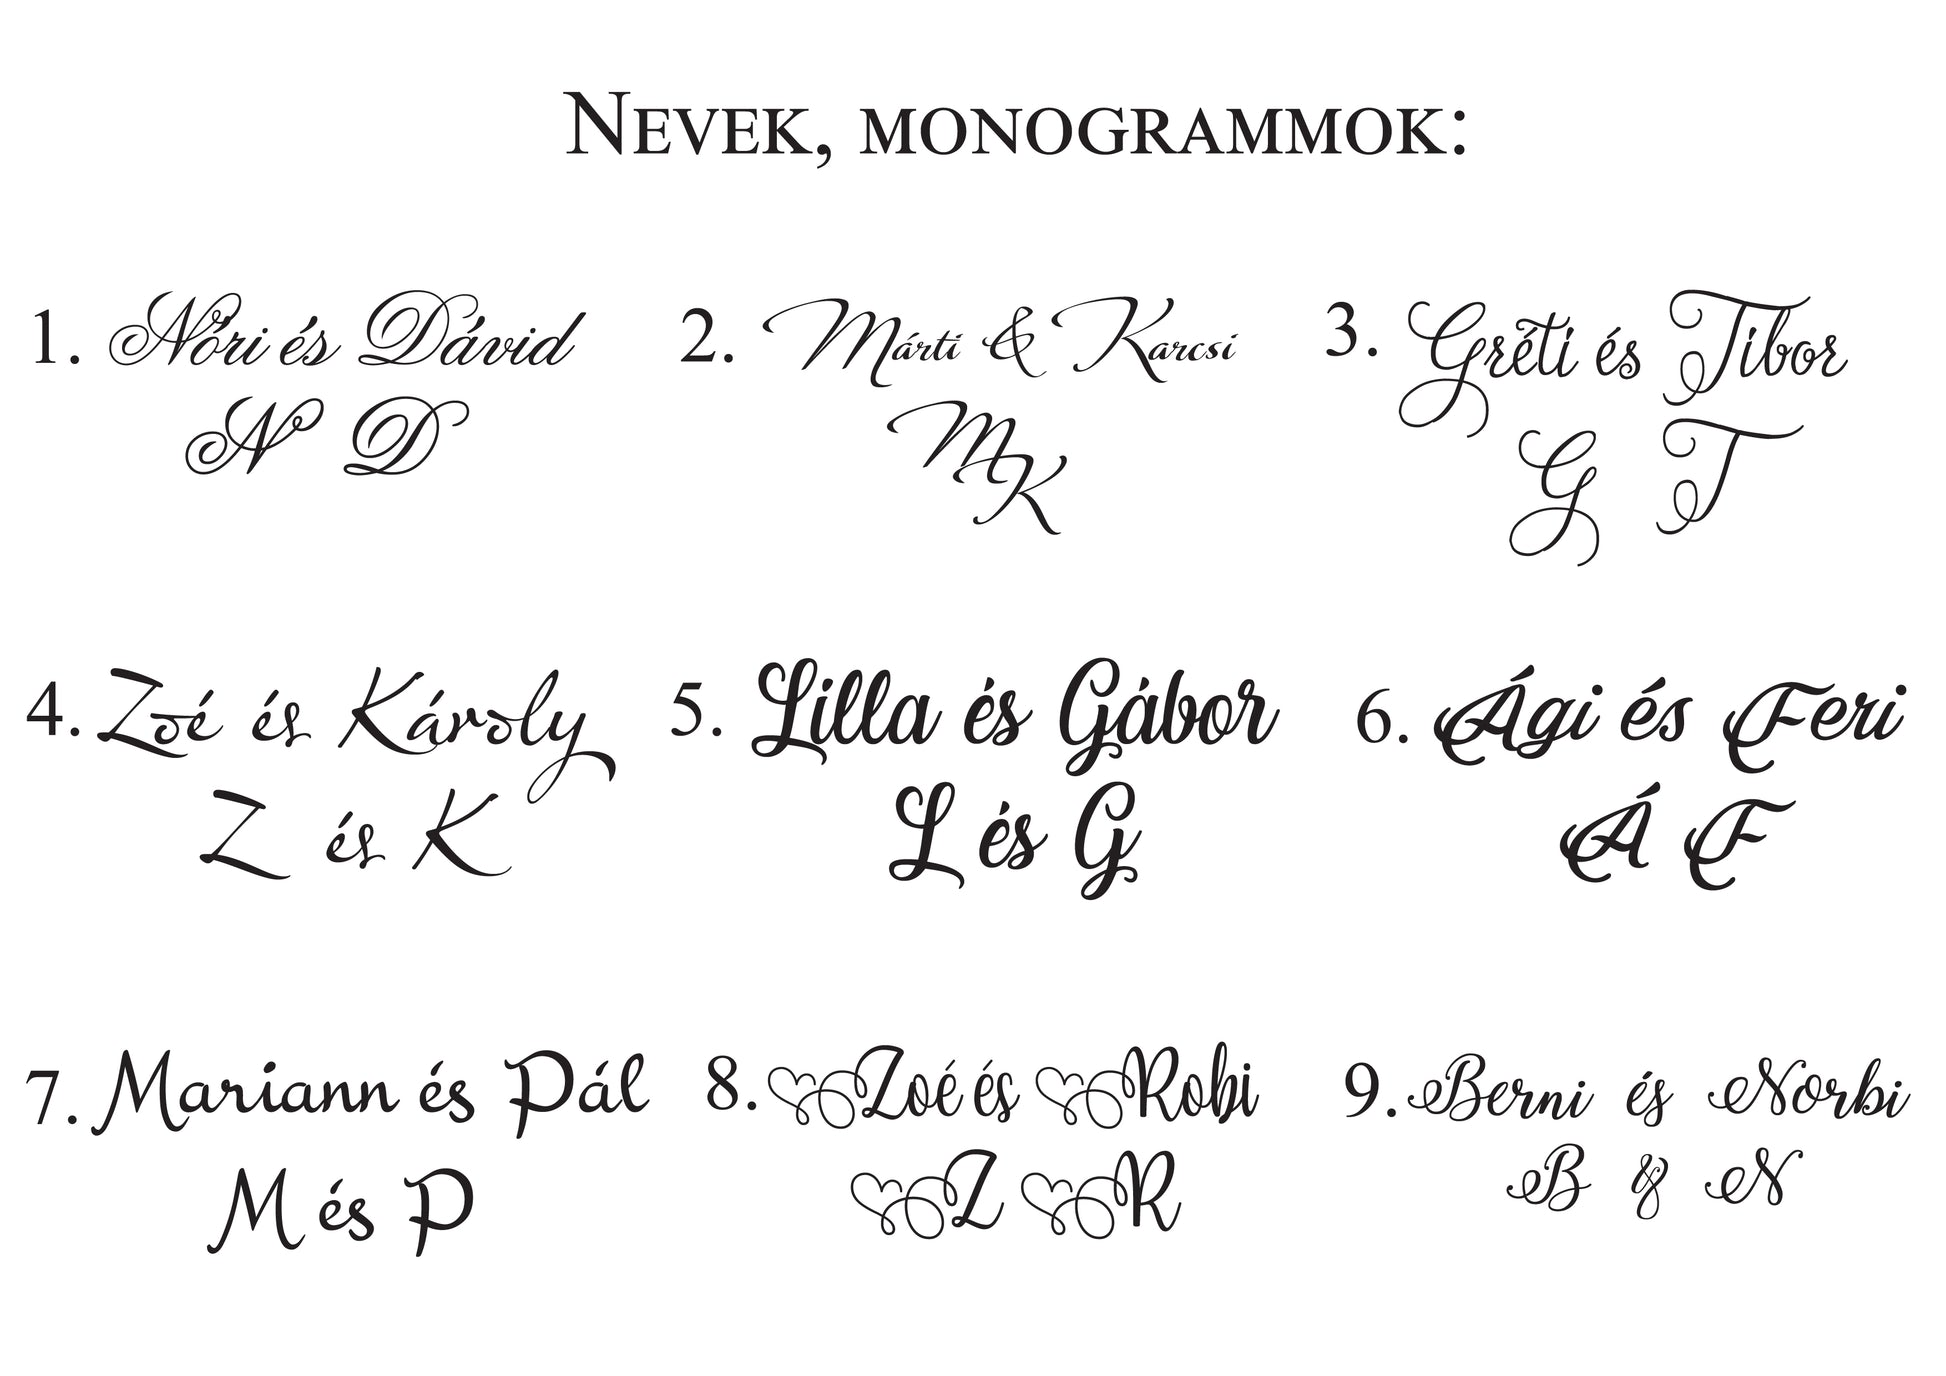 Nevek, monogrammok:
1. Nóri és Dávid
N D
2. Márti & Karcsi
MK
3. Gréti és Tibor
G T
4. Zoé és Károly
Z és K
5. Lilla és Gábor
L és G
6. Ági és Feri
Á F
7. Mariann és Pál
M és P
8. Zoé és Robi
Z R
9. Berni és Norbi
B & N